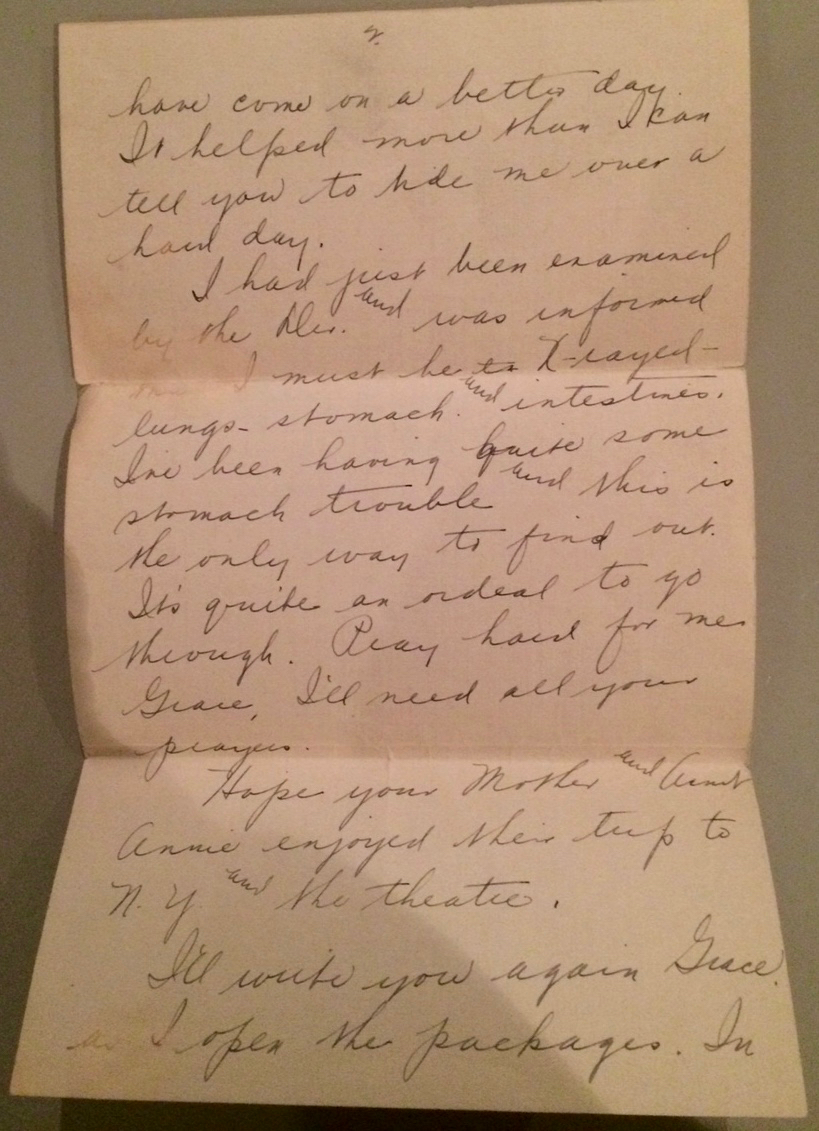 2.
have come on a better day.
It helped more than I can
tell you to tide me over a
hard day.
I had just been examined
by the Drs. and was informed
I must be to X-rayed-
lungs- stomach. and intestines.
I've been having quite some
stomach trouble and this is
the only way to find out.
It's quite an ordeal to go
through. Pray hard for me
Grace, I'll need all your
prayers.
Hope your Mother and Aunt
Annie enjoyed their trip to
N.Y. and the theatre.
I'll write you again Grace.
as I open the packages. In